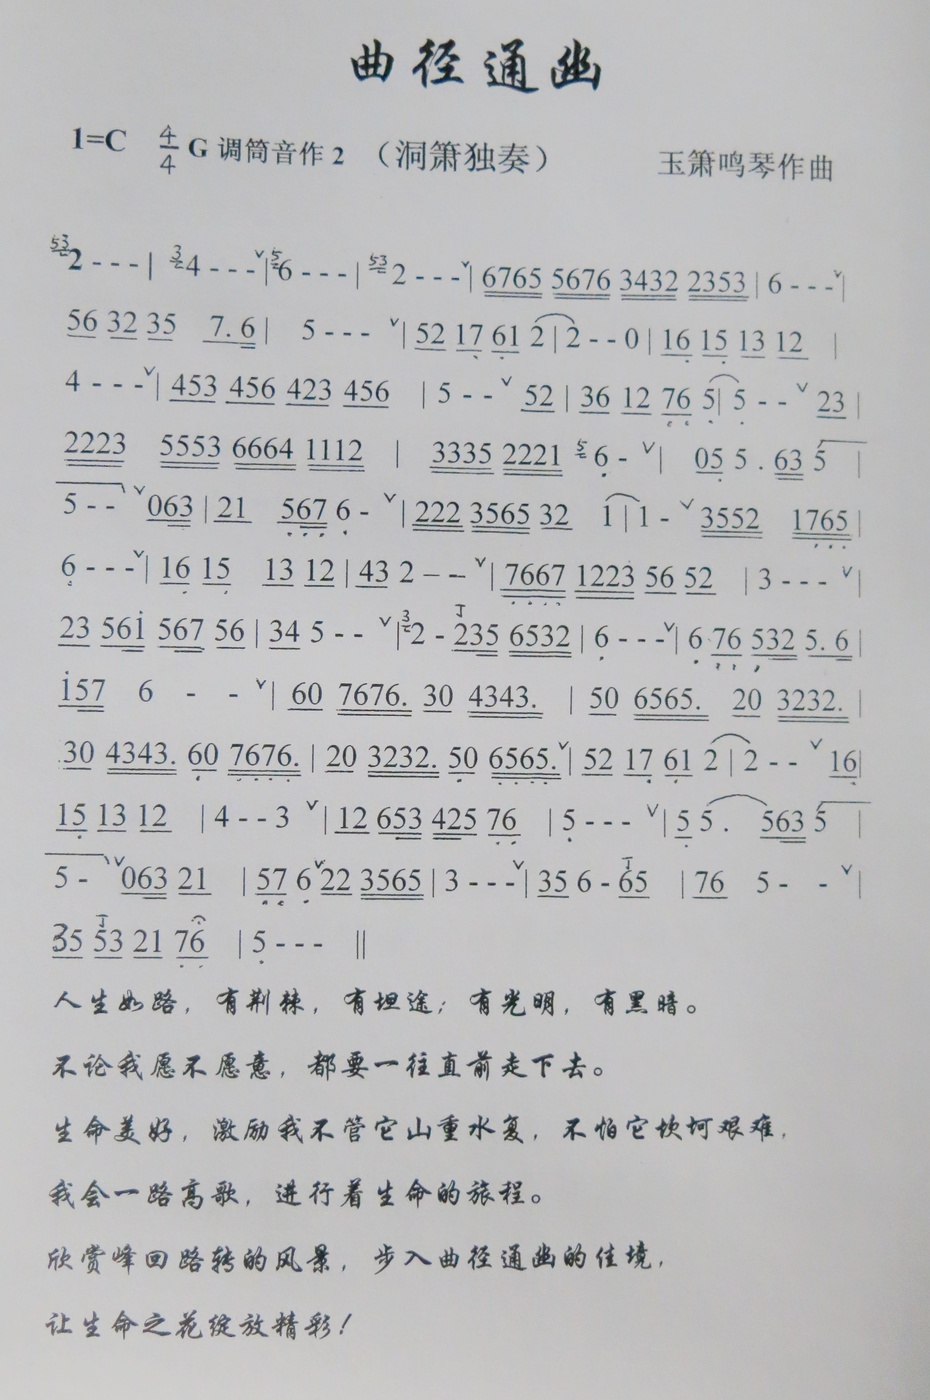 曲径通幽
1=C 4/4 G 调筒音作 2 （洞箫独奏） 玉箫鸣琴作曲
53 2 - - - | 32 4 - - - ∨| 5 6 - - - | 53 2 - - - ∨| 6765 5676 3432 2353 | 6 - - - ∨|
56 32 35 7. 6 | 5 - - - ∨| 52 17 61 2 | 2 - - 0 | 16 15 13 12 |
4 - - - ∨| 453 456 423 456 | 5 - - ∨ 52 | 36 12 76 5 | 5 - - ∨ 23 |
2223 5553 6664 1112 | 3335 2221 5 6 - ∨| 05 5 . 63 5 |
5 - - ∨ 063 | 21 567 6 - ∨| 222 3565 32 1 | 1 - ∨ 3552 1765 |
6 - - - ∨| 16 15 13 12 | 43 2 – – ∨| 7667 1223 56 52 | 3 - - - ∨|
23 561 567 56 | 34 5 - - ∨| 3 2 - 235 6532 | 6 - - - ∨| 6 76 532 5. 6 |
157 6 - - ∨| 60 7676. 30 4343. | 50 6565. 20 3232. |
30 4343. 60 7676. | 20 3232. 50 6565. ∨| 52 17 61 2 | 2 - - ∨ 16 |
15 13 12 | 4 - - 3 ∨| 12 653 425 76 | 5 - - - ∨| 5 5 . 563 5 |
5 - ∨ 063 21 | 57 6 ∨ 22 3565 | 3 - - - ∨| 35 6 - 65 | 76 5 - - ∨|
35 53 21 76 | 5 - - - ||
人生如路，有荆棘，有坦途；有光明，有黑暗。
不论我愿不愿意，都要一往直前走下去。
生命美好，激励我不管它山重水复，不怕它坎坷艰难，
我会一路高歌，进行着生命的旅程。
欣赏峰回路转的风景，步入曲径通幽的佳境，
让生命之花绽放精彩！